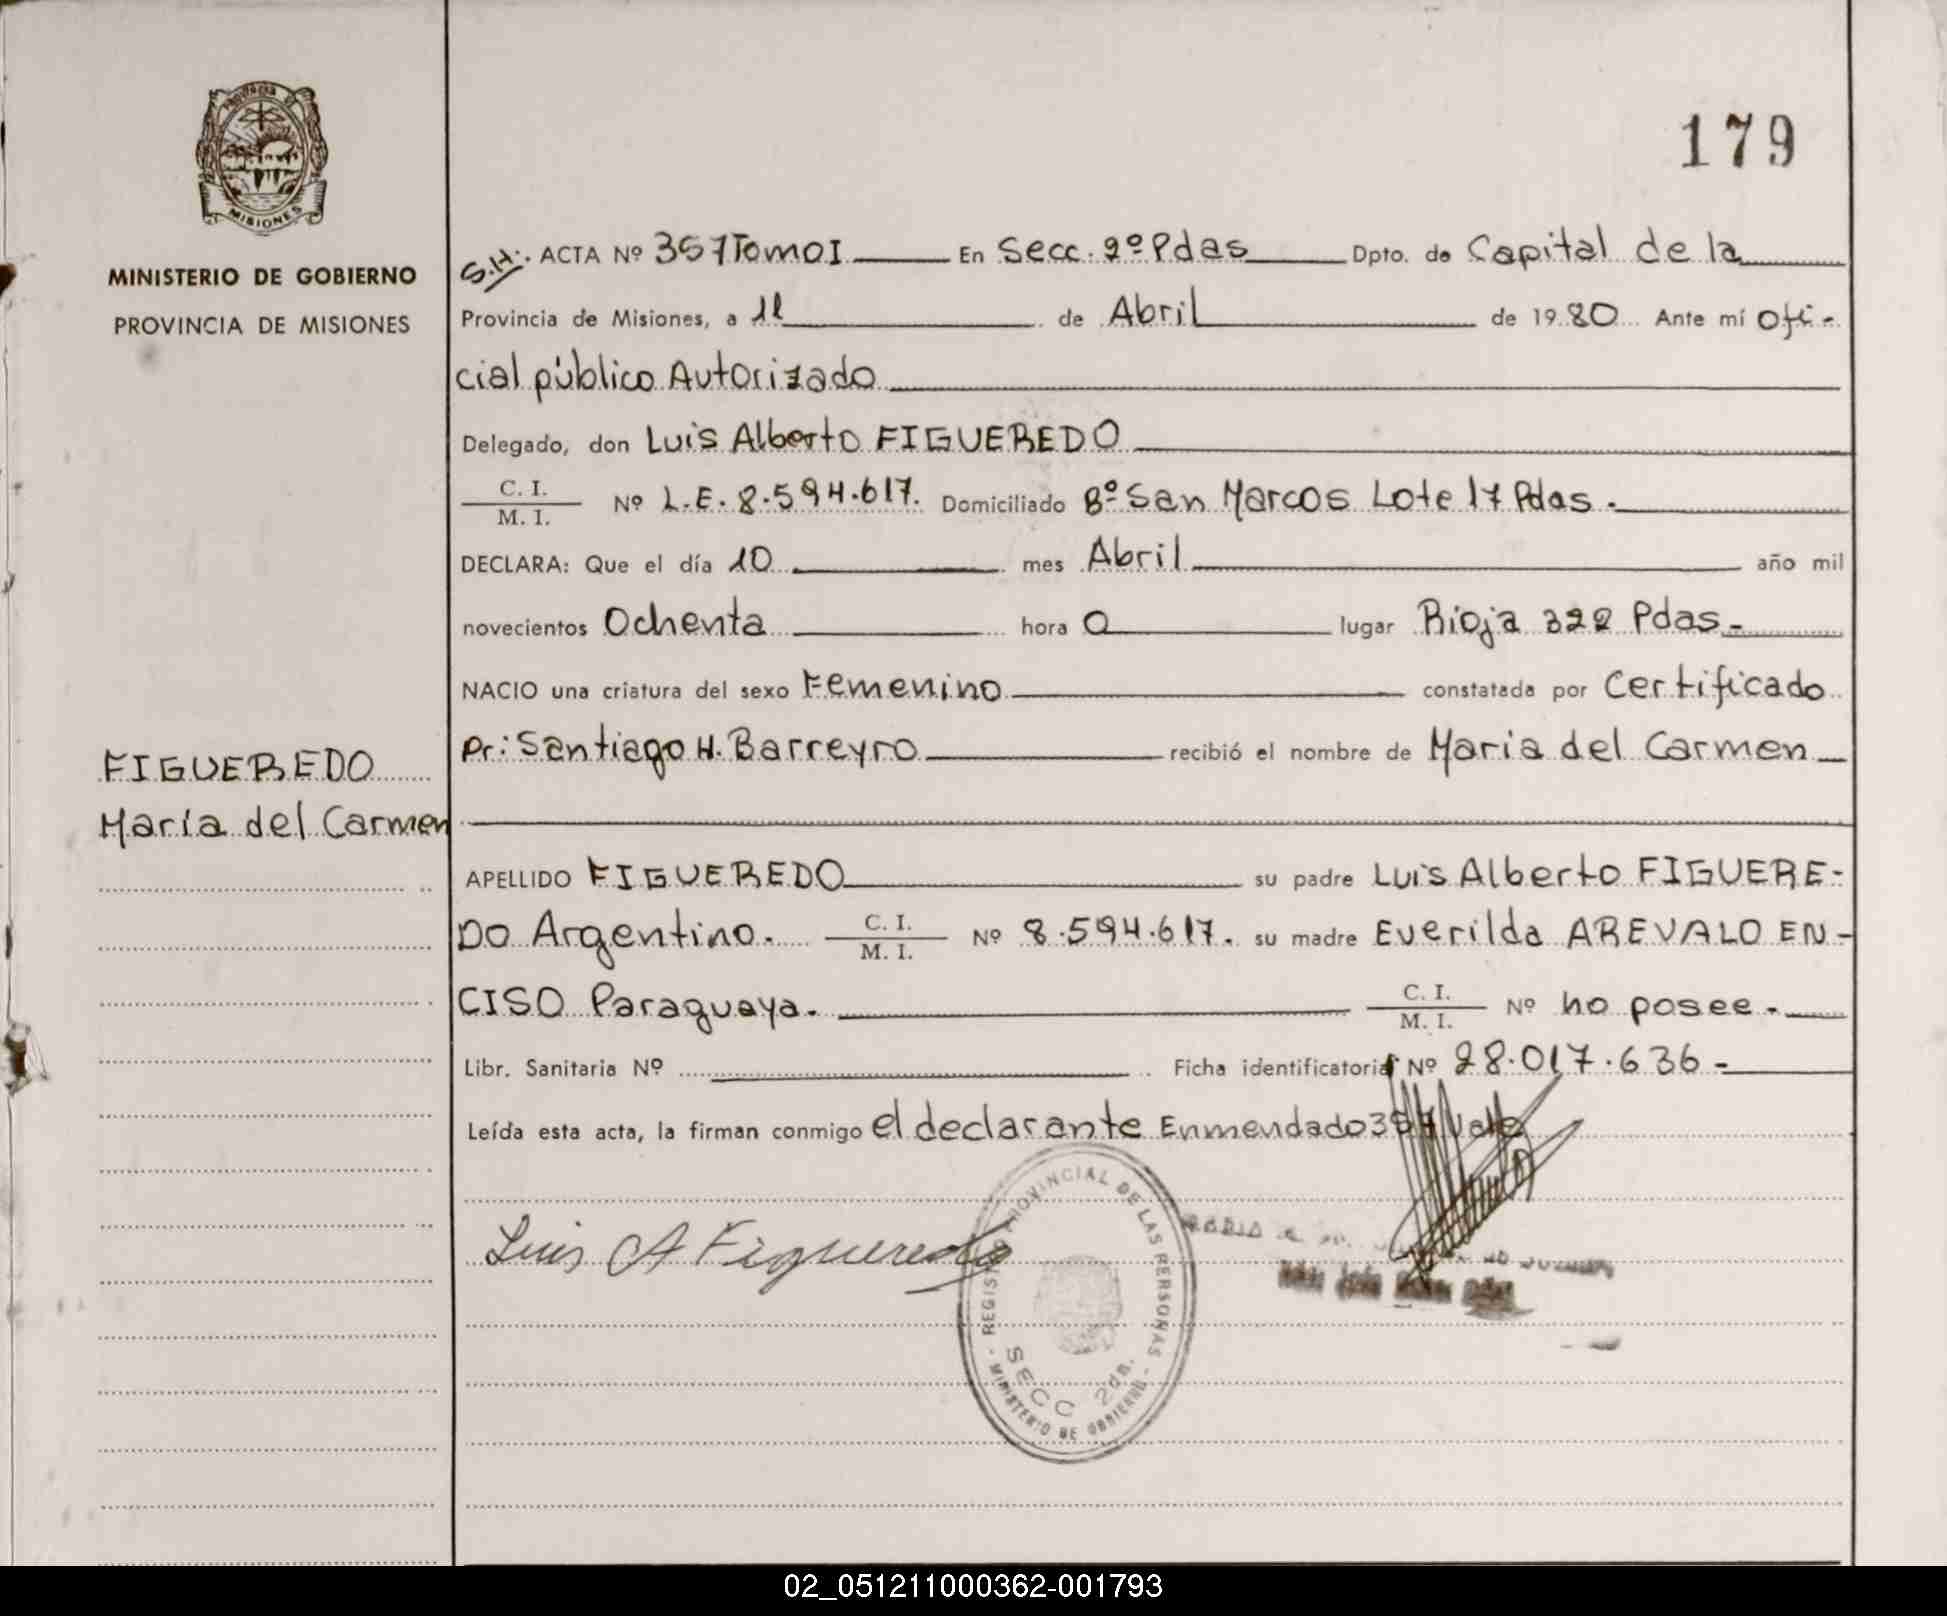 179
MINISTERIO DE GOBIERNO
PROVINCIA DE MISIONES
MISIONES
S.H. ACTA Nº 357 Tomo I En Secc. 2º Pdas Dpto. de Capital de la
Provincia de Misiones, a 11 de Abril de 1980 Ante mí ofi-
cial público Autorizado
Delegado, don Luis Alberto FIGUEREDO
C. I.
M. I.
Nº L.E. 8.594.617. Domiciliado Bº San Marcos Lote 17 Pdas.
DECLARA: Que el día 10 mes Abril año mil
novecientos Ochenta hora 0 lugar Rioja 322 Pdas.-
NACIO una criatura del sexo Femenino constatada por Certificado
Pr: Santiago H. Barreyro recibió el nombre de María del Carmen
FIGUEREDO
María del Carmen
APELLIDO FIGUEREDO su padre Luis Alberto FIGUERE-
DO Argentino. C. I. M. I. Nº 8.594.617. su madre Everilda AREVALO EN-
CISO Paraguaya. C. I. M. I. Nº no posee.-
Libr. Sanitaria Nº Ficha identificatoria Nº 28.017.636-
Leída esta acta, la firman conmigo el declarante Enmendado 357 Vale
Luis A Figueredo
REGISTRO PROVINCIAL DE LAS PERSONAS
SECC 2da.
MINISTERIO DE GOBIERNO
02_051211000362-001793